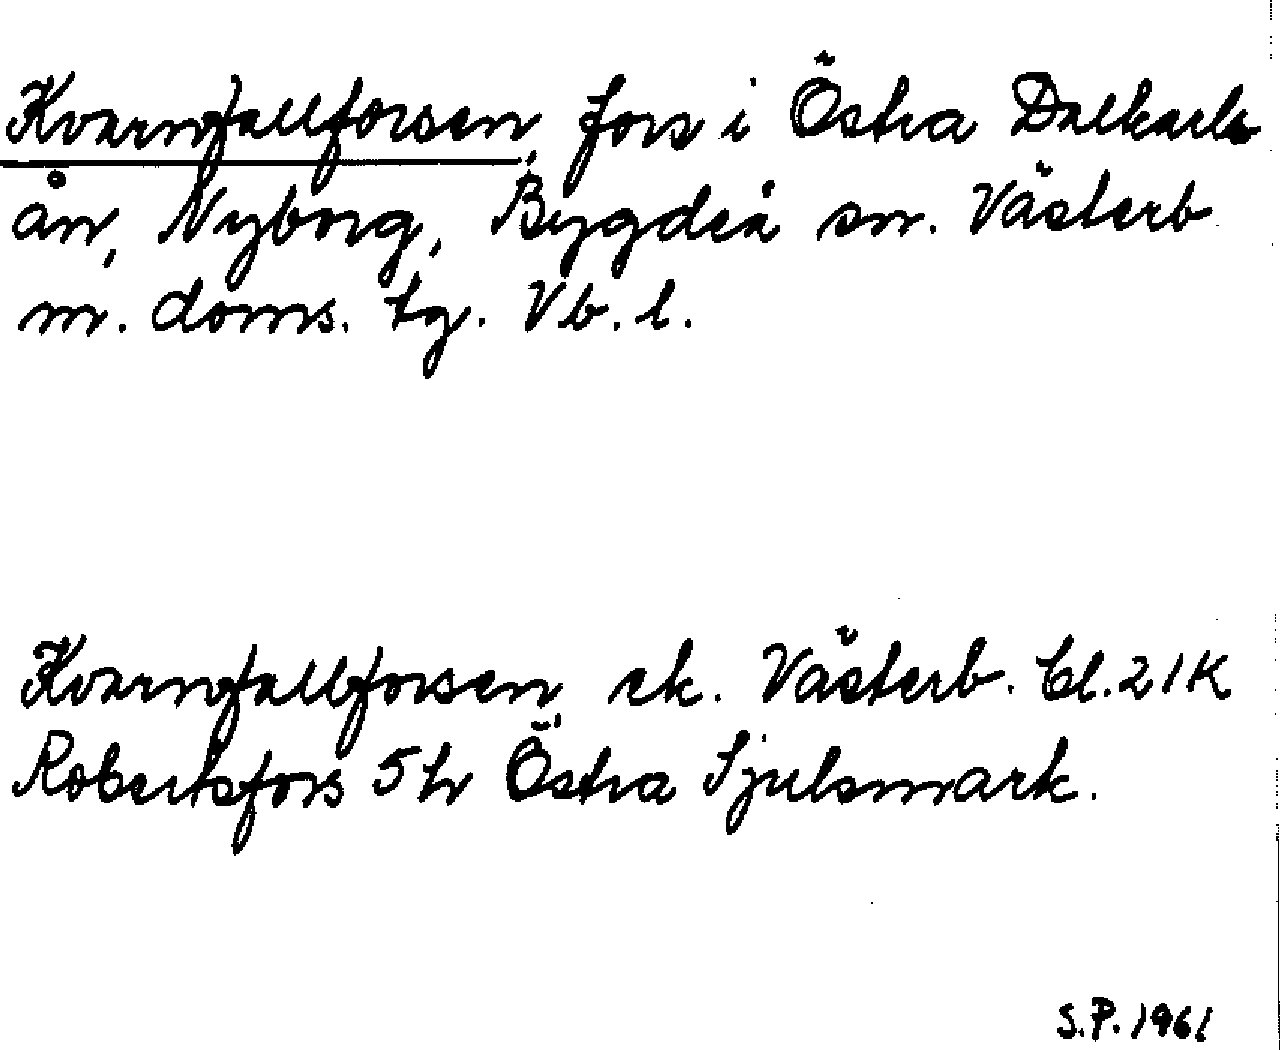 Kvarnfallforsen, fors i Östra Dalkarls
ån, Nyborg, Bygdeå sn. Västerb
m. doms. tg. Vb. l.
Kvarnfallforsen, ek. Västerb. Bl. 21K
Robertsfors 5h Östra Sjulsmark.
S.P. 1961